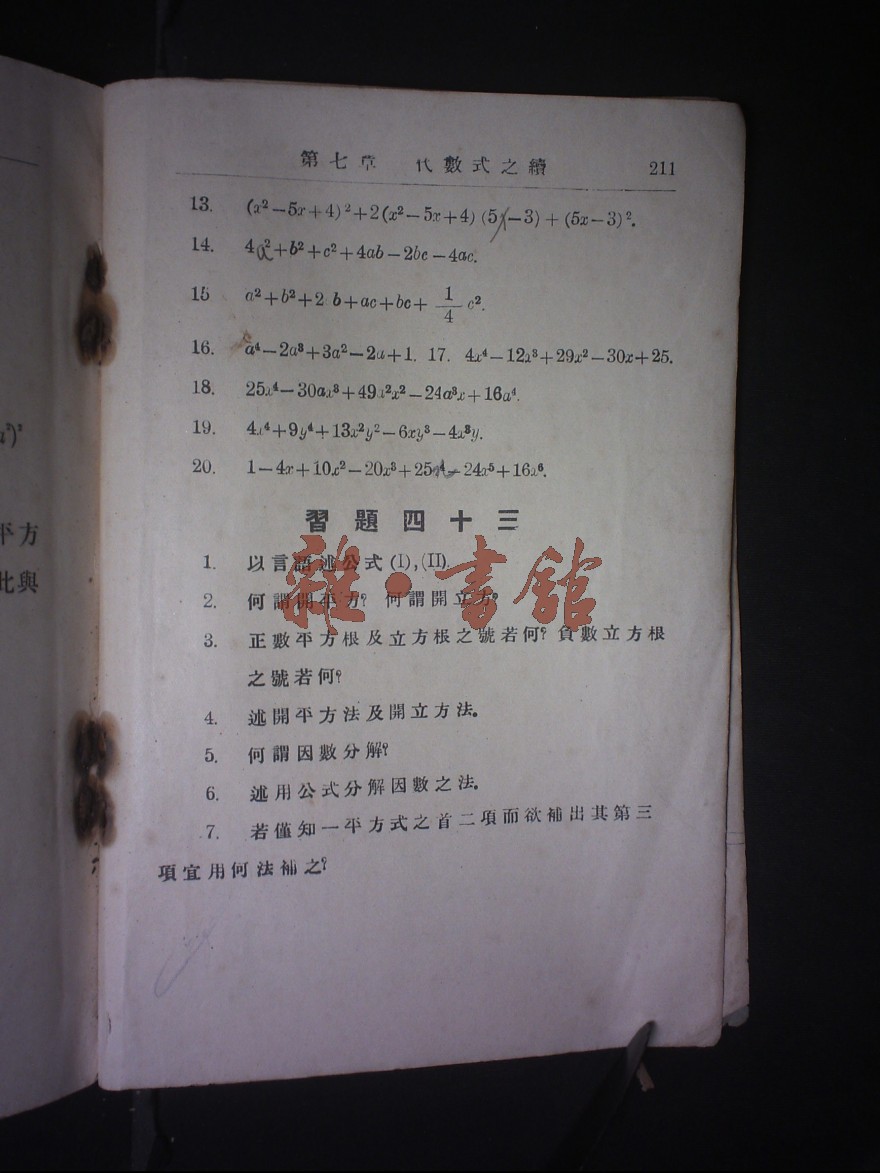 第七章 代數式之續 211
13. (x²−5x+4)²+2(x²−5x+4)(5x−3)+(5x−3)².
14. 4a²+b²+c²+4ab−2bc−4ac.
15 a²+b²+2 b+ac+bc+ 1/4 c².
16. a⁴−2a³+3a²−2a+1. 17. 4x⁴−12x³+29x²−30x+25.
18. 25x⁴−30ax³+49a²x²−24a³x+16a⁴.
19. 4x⁴+9y⁴+13x²y²−6xy³−4x³y.
20. 1−4x+10x²−20x³+25x⁴−24x⁵+16x⁶.
習題四十三
1. 以言語述公式(I),(II).
2. 何謂開平方? 何謂開立方?
3. 正數平方根及立方根之號若何?負數立方根
之號若何?
4. 述開平方法及開立方法。
5. 何謂因數分解?
6. 述用公式分解因數之法。
7. 若僅知一平方式之首二項而欲補出其第三
項宜用何法補之?
雜·書館
平方
比與